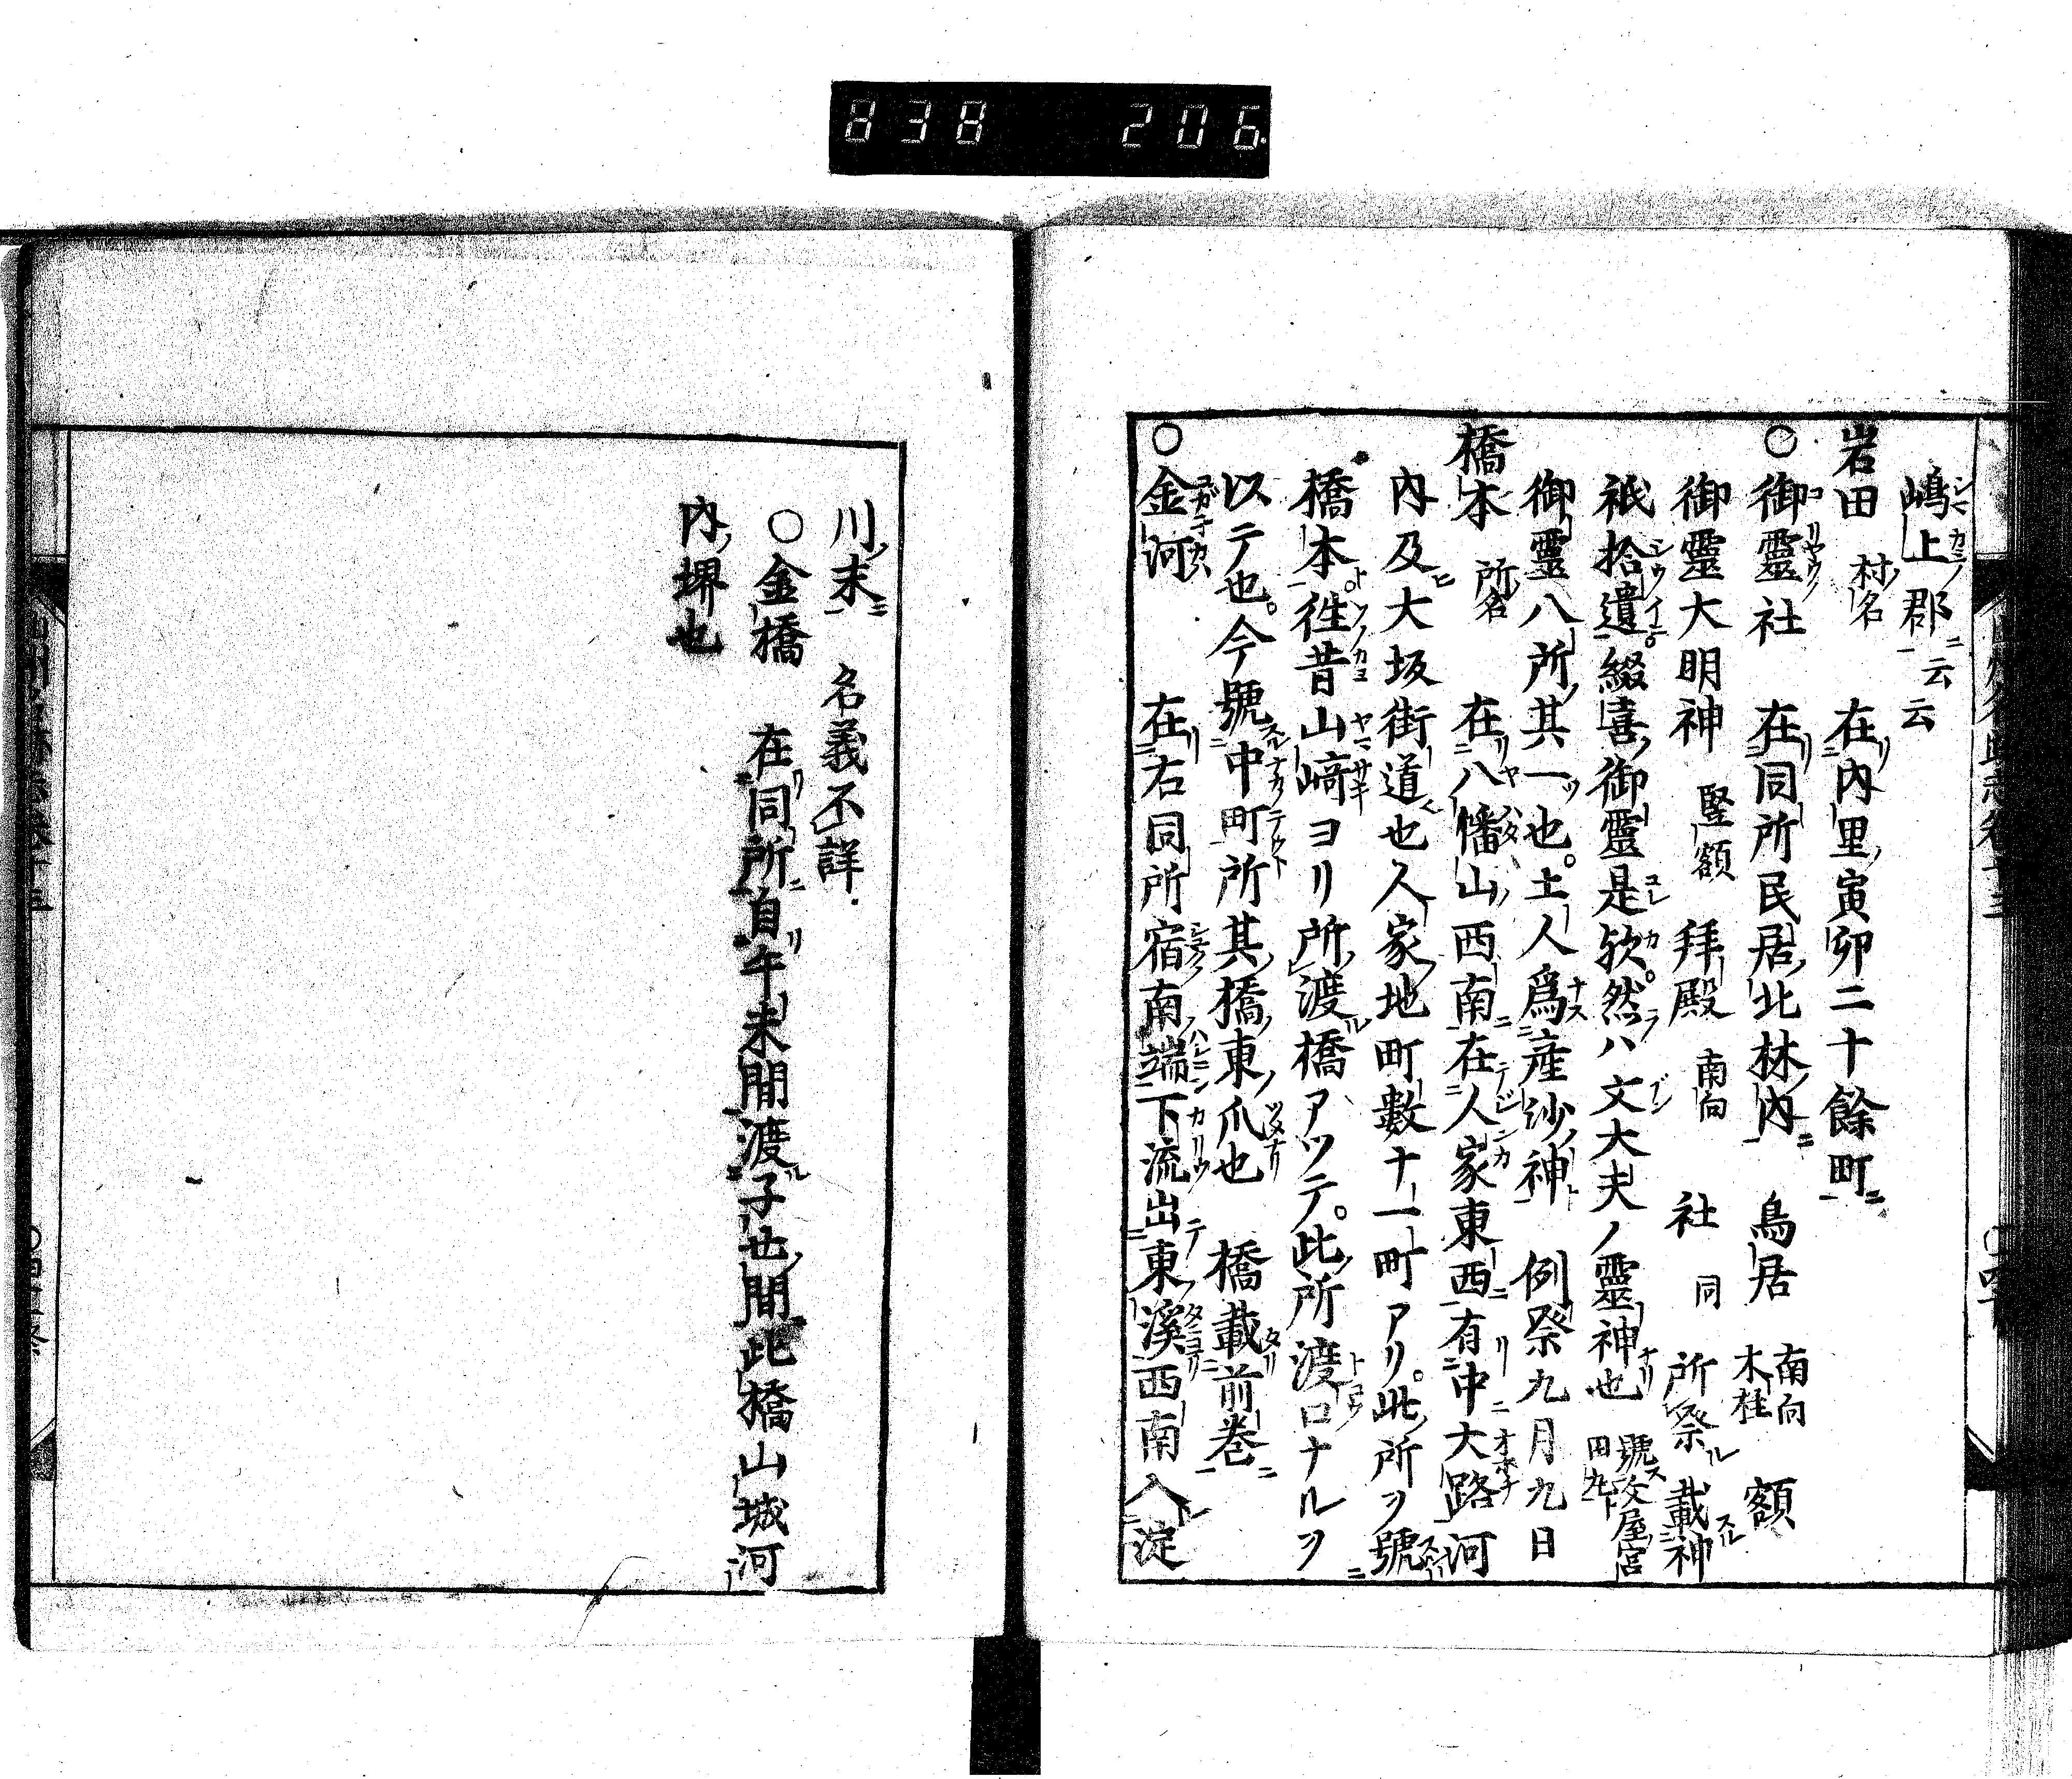 838 206
嶋上郡云云
岩田 村名 在内里寅卯二十餘町
○御靈社 在同所民居北林内 鳥居 南向 木柱 額
御靈大明神 竪額 拜殿 南向 社 同 所祭載神
祇拾遺綴喜御靈是欤然ハ文大夫ノ靈神也 號文屋宮田丸ト
御靈八所其一也土人爲産沙神 例祭九月九日
橋本 所名 在八幡山西南在人家東西有中大路河
内及大坂街道也人家地町數十一町アリ此所ヲ號
橋本徃昔山﨑ヨリ所渡橋アツテ此所渡口ナルヲ
以テ也今號中町所其橋東爪也 橋載前巻
○金河 在右同所宿南端下流出東溪西南入淀
川末 名義不詳
○金橋 在同所自午未間渡子丑間此橋山城河
内堺也